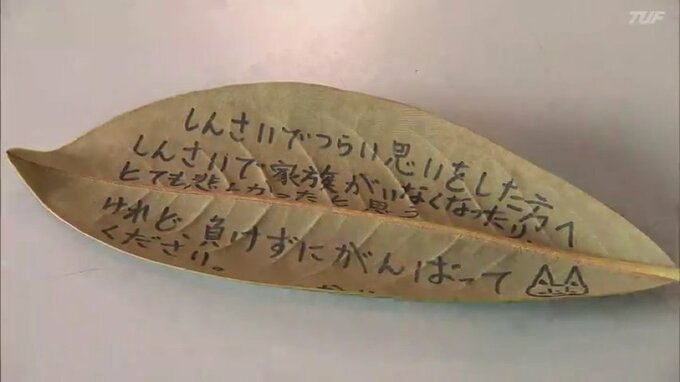 TUF
しんさいでつらい思いをした方へ
しんさいで家族がいなくなったり、
とても悲しかったと思う
けれど、負けずにがんばって
ください。